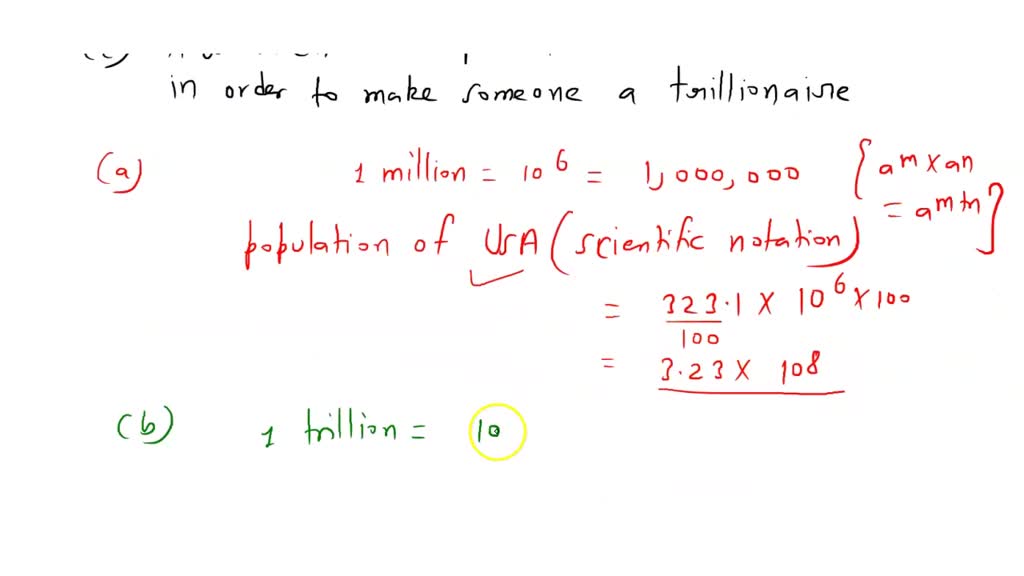 in order to make someone a trillionaire
(a) 1 million = 10⁶ = 1,000,000 {aᵐ x aⁿ
= aᵐ⁺ⁿ}
population of USA (scientific notation)
= 323.1 x 10⁶ x 100
100
= 3.23 x 10⁸
(b) 1 trillion = 10